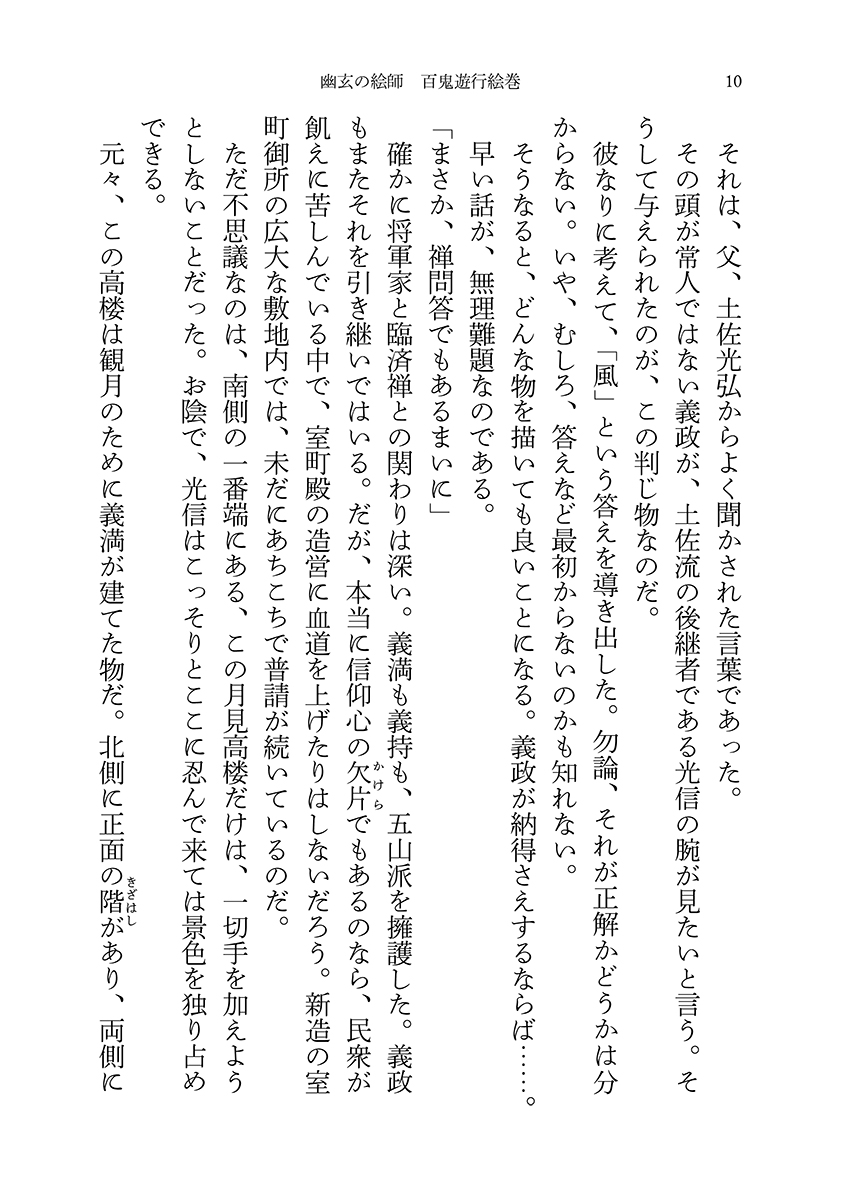 幽玄の絵師　百鬼遊行絵巻
10
それは、父、土佐光弘からよく聞かされた言葉であった。
その頭が常人ではない義政が、土佐流の後継者である光信の腕が見たいと言う。そ
うして与えられたのが、この判じ物なのだ。
彼なりに考えて、「風」という答えを導き出した。勿論、それが正解かどうかは分
からない。いや、むしろ、答えなど最初からないのかも知れない。
そうなると、どんな物を描いても良いことになる。義政が納得さえするならば……。
早い話が、無理難題なのである。
「まさか、禅問答でもあるまいに」
確かに将軍家と臨済禅との関わりは深い。義満も義持も、五山派を擁護した。義政
もまたそれを引き継いではいる。だが、本当に信仰心の欠片でもあるのなら、民衆が
かけら
飢えに苦しんでいる中で、室町殿の造営に血道を上げたりはしないだろう。新造の室
町御所の広大な敷地内では、未だにあちこちで普請が続いているのだ。
ただ不思議なのは、南側の一番端にある、この月見高楼だけは、一切手を加えよう
としないことだった。お陰で、光信はこっそりとここに忍んで来ては景色を独り占め
できる。
元々、この高楼は観月のために義満が建てた物だ。北側に正面の階があり、両側に
きざはし